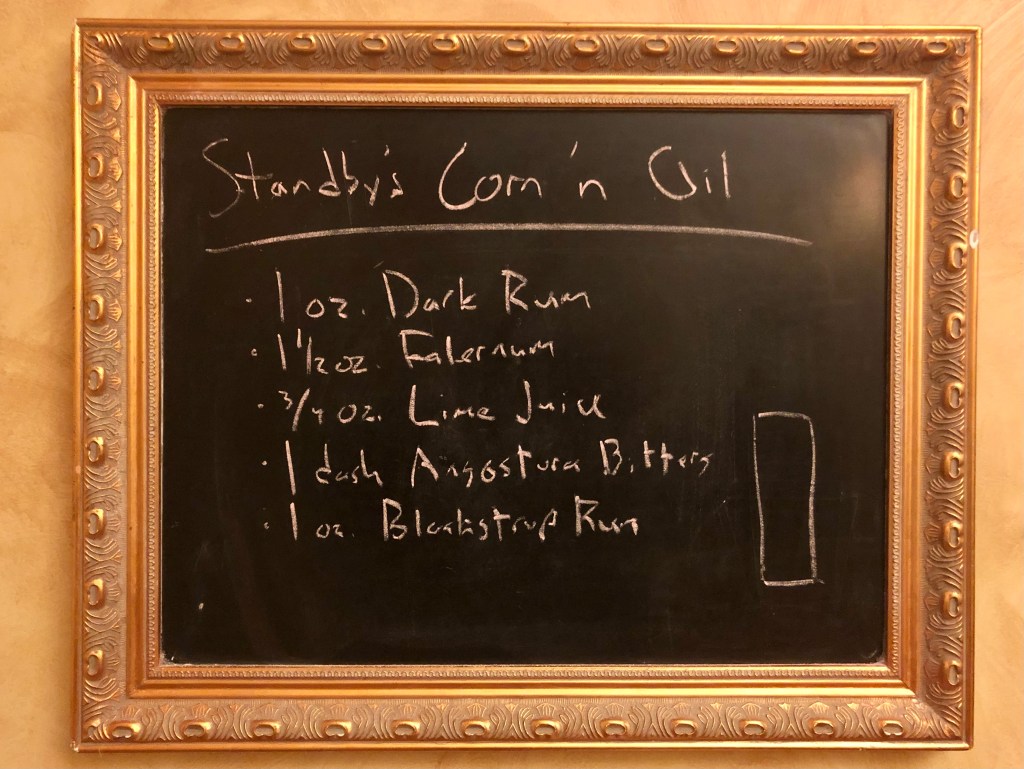 Standby's Corn 'n Oil
· 1 oz. Dark Rum
· 1 1/2 oz. Falernum
· 3/4 oz. Lime Juice
· 1 dash Angostura Bitters
· 1 oz. Blackstrap Rum